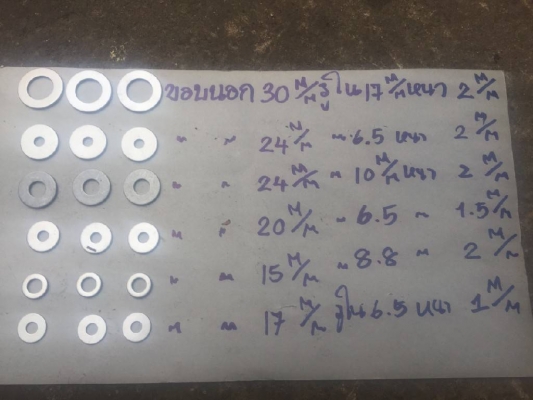 ขอบนอก 30 M/M รูใน 17 M/M หนา 2 M/M
" " 24 M/M " 6.5 หนา 2 M/M
" " 24 M/M " 10 M/M หนา 2 M/M
" " 20 M/M " 6.5 " 1.5 M/M
" " 15 M/M " 8.8 " 2 M/M
" " 17 M/M รูใน 6.5 หนา 1 M/M